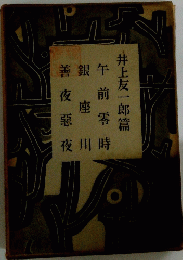 井上友一郎篇
午前零時
銀座川
善夜惡夜